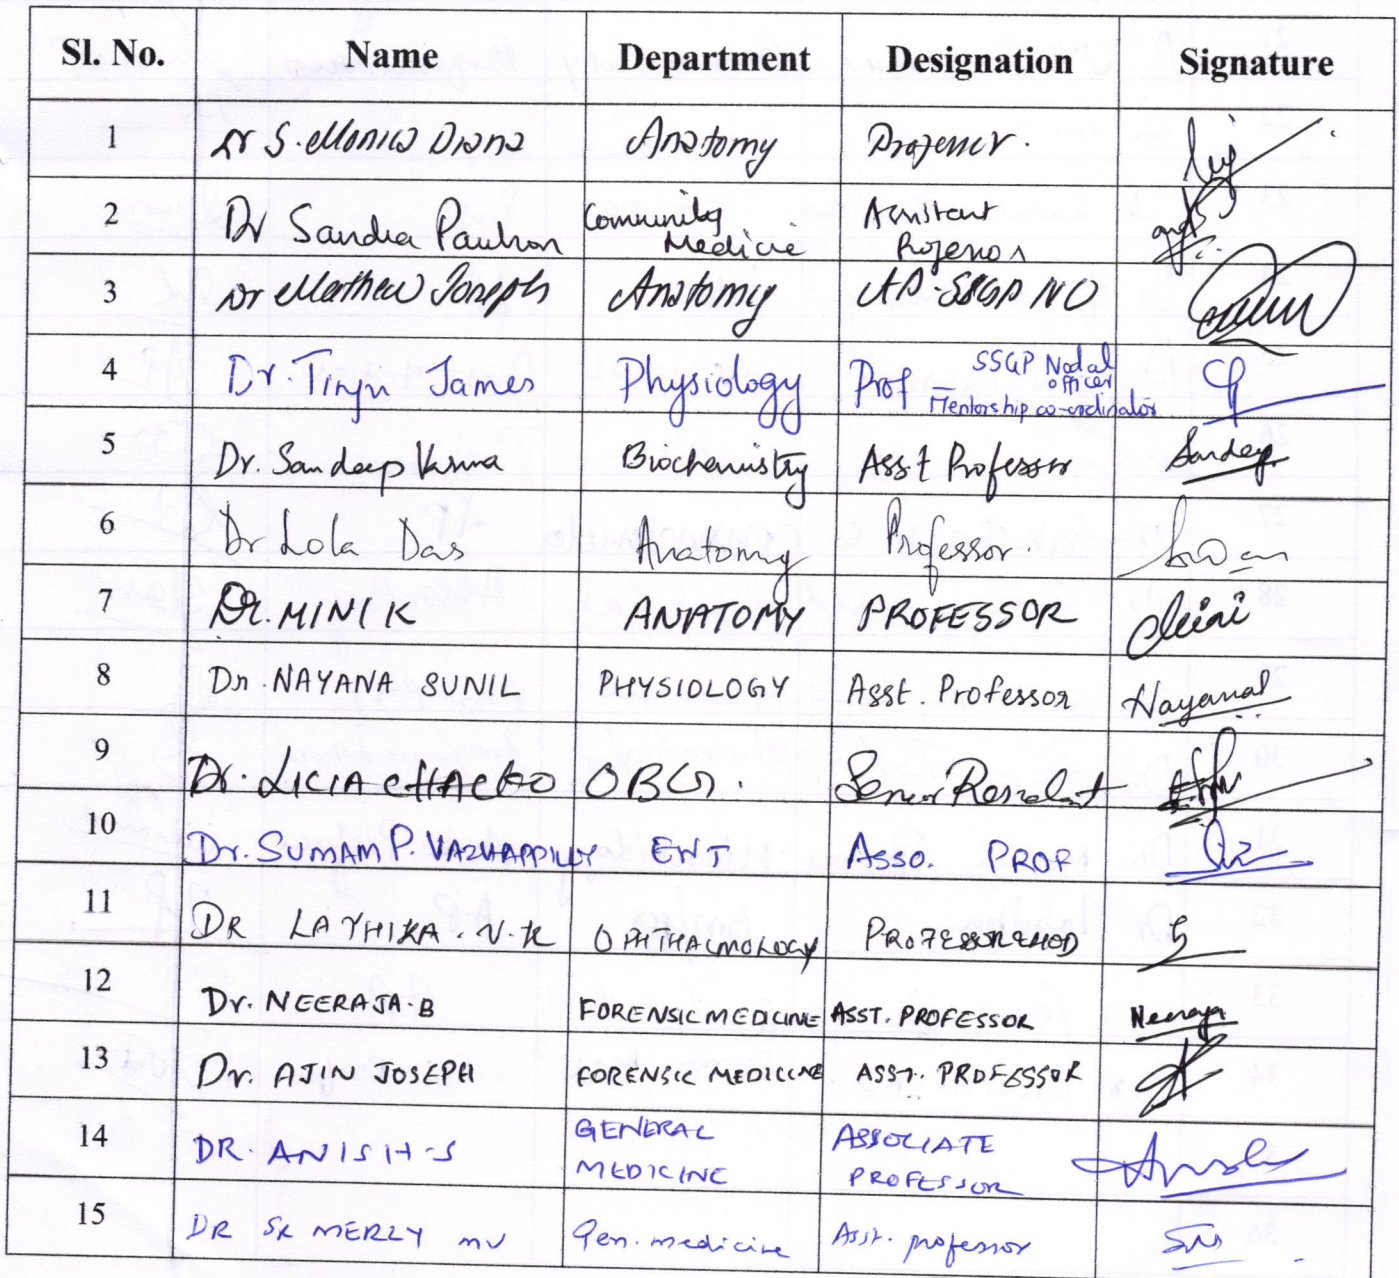 Sl. No. Name Department Designation Signature
1 Dr S. Monica Diana Anatomy Professor.
2 Dr Sandra Paulson Community Medicine Assistant Professor
3 Dr Mathew Joseph Anatomy AP-SSGP NO
4 Dr. Tinju James Physiology Prof – SSGP Nodal officer Mentorship co-ordinator
5 Dr. Sandeep Varma Biochemistry Asst Professor Sandeep
6 Dr Lola Das Anatomy Professor.
7 Dr. MINI K ANATOMY PROFESSOR Mini
8 Dr. NAYANA SUNIL PHYSIOLOGY Asst. Professor
9 Dr. LICIA CHACKO OBG. Senior Resident
10 Dr. SUMAM P. VAZHAPPILLY ENT ASSO. PROF
11 DR LATHIKA. V.K OPHTHALMOLOGY PROFESSOR & HOD
12 Dr. NEERAJA.B FORENSIC MEDICINE ASST. PROFESSOR Neeraja
13 Dr. AJIN JOSEPH FORENSIC MEDICINE ASST. PROFESSOR
14 DR. ANISH-S GENERAL MEDICINE ASSOCIATE PROFESSOR
15 DR SR MERLY MV Gen. medicine Asst. professor